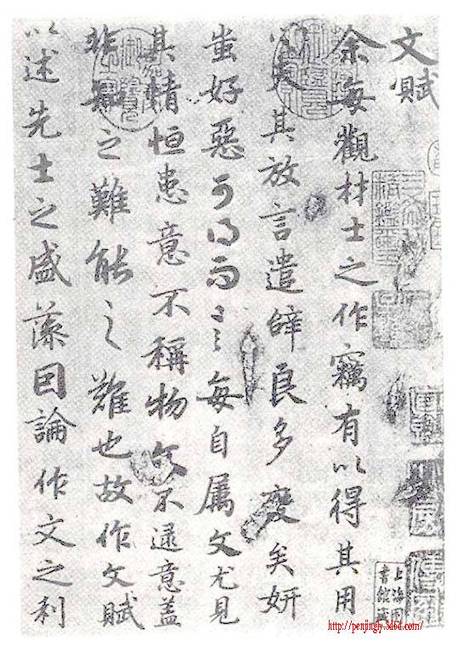 文賦
余每觀材士之作竊有以得其用
心夫其放言遣辭良多變矣妍
蚩好惡可得而言每自属文尤見
其情恒患意不稱物文不逮意盖
非知之難能之難也故作文賦
以述先士之盛藻因論作文之利
上海圖
書館藏